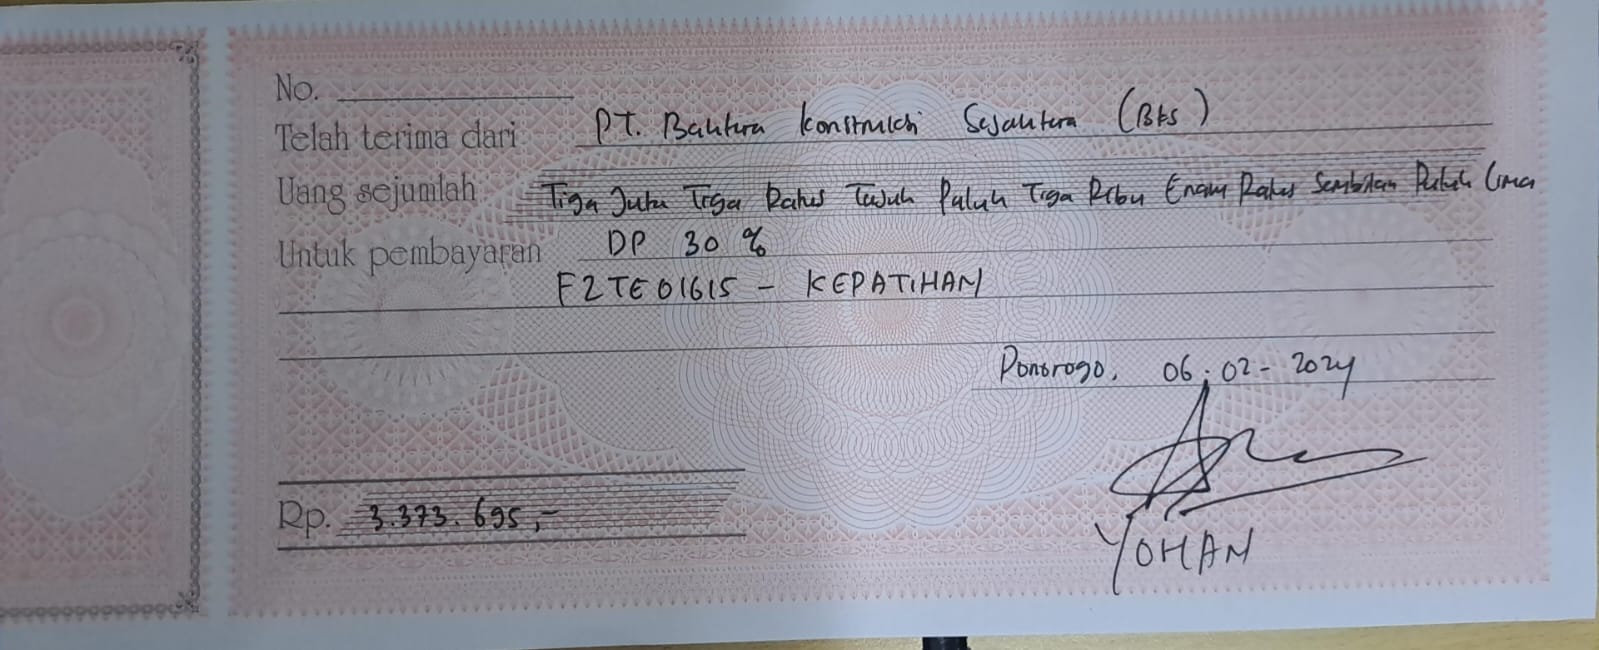 No.
Telah terima dari PT. Bahtera Konstruksi Sejahtera (BKS)
Uang sejumlah Tiga Juta Tiga Ratus Tujuh Puluh Tiga Ribu Enam Ratus Sembilan Puluh Lima
Untuk pembayaran DP 30 %
F2TE01615 - KEPATIHAN
Ponorogo, 06-02-2024
Rp. 3.373.695,-
YOHAN